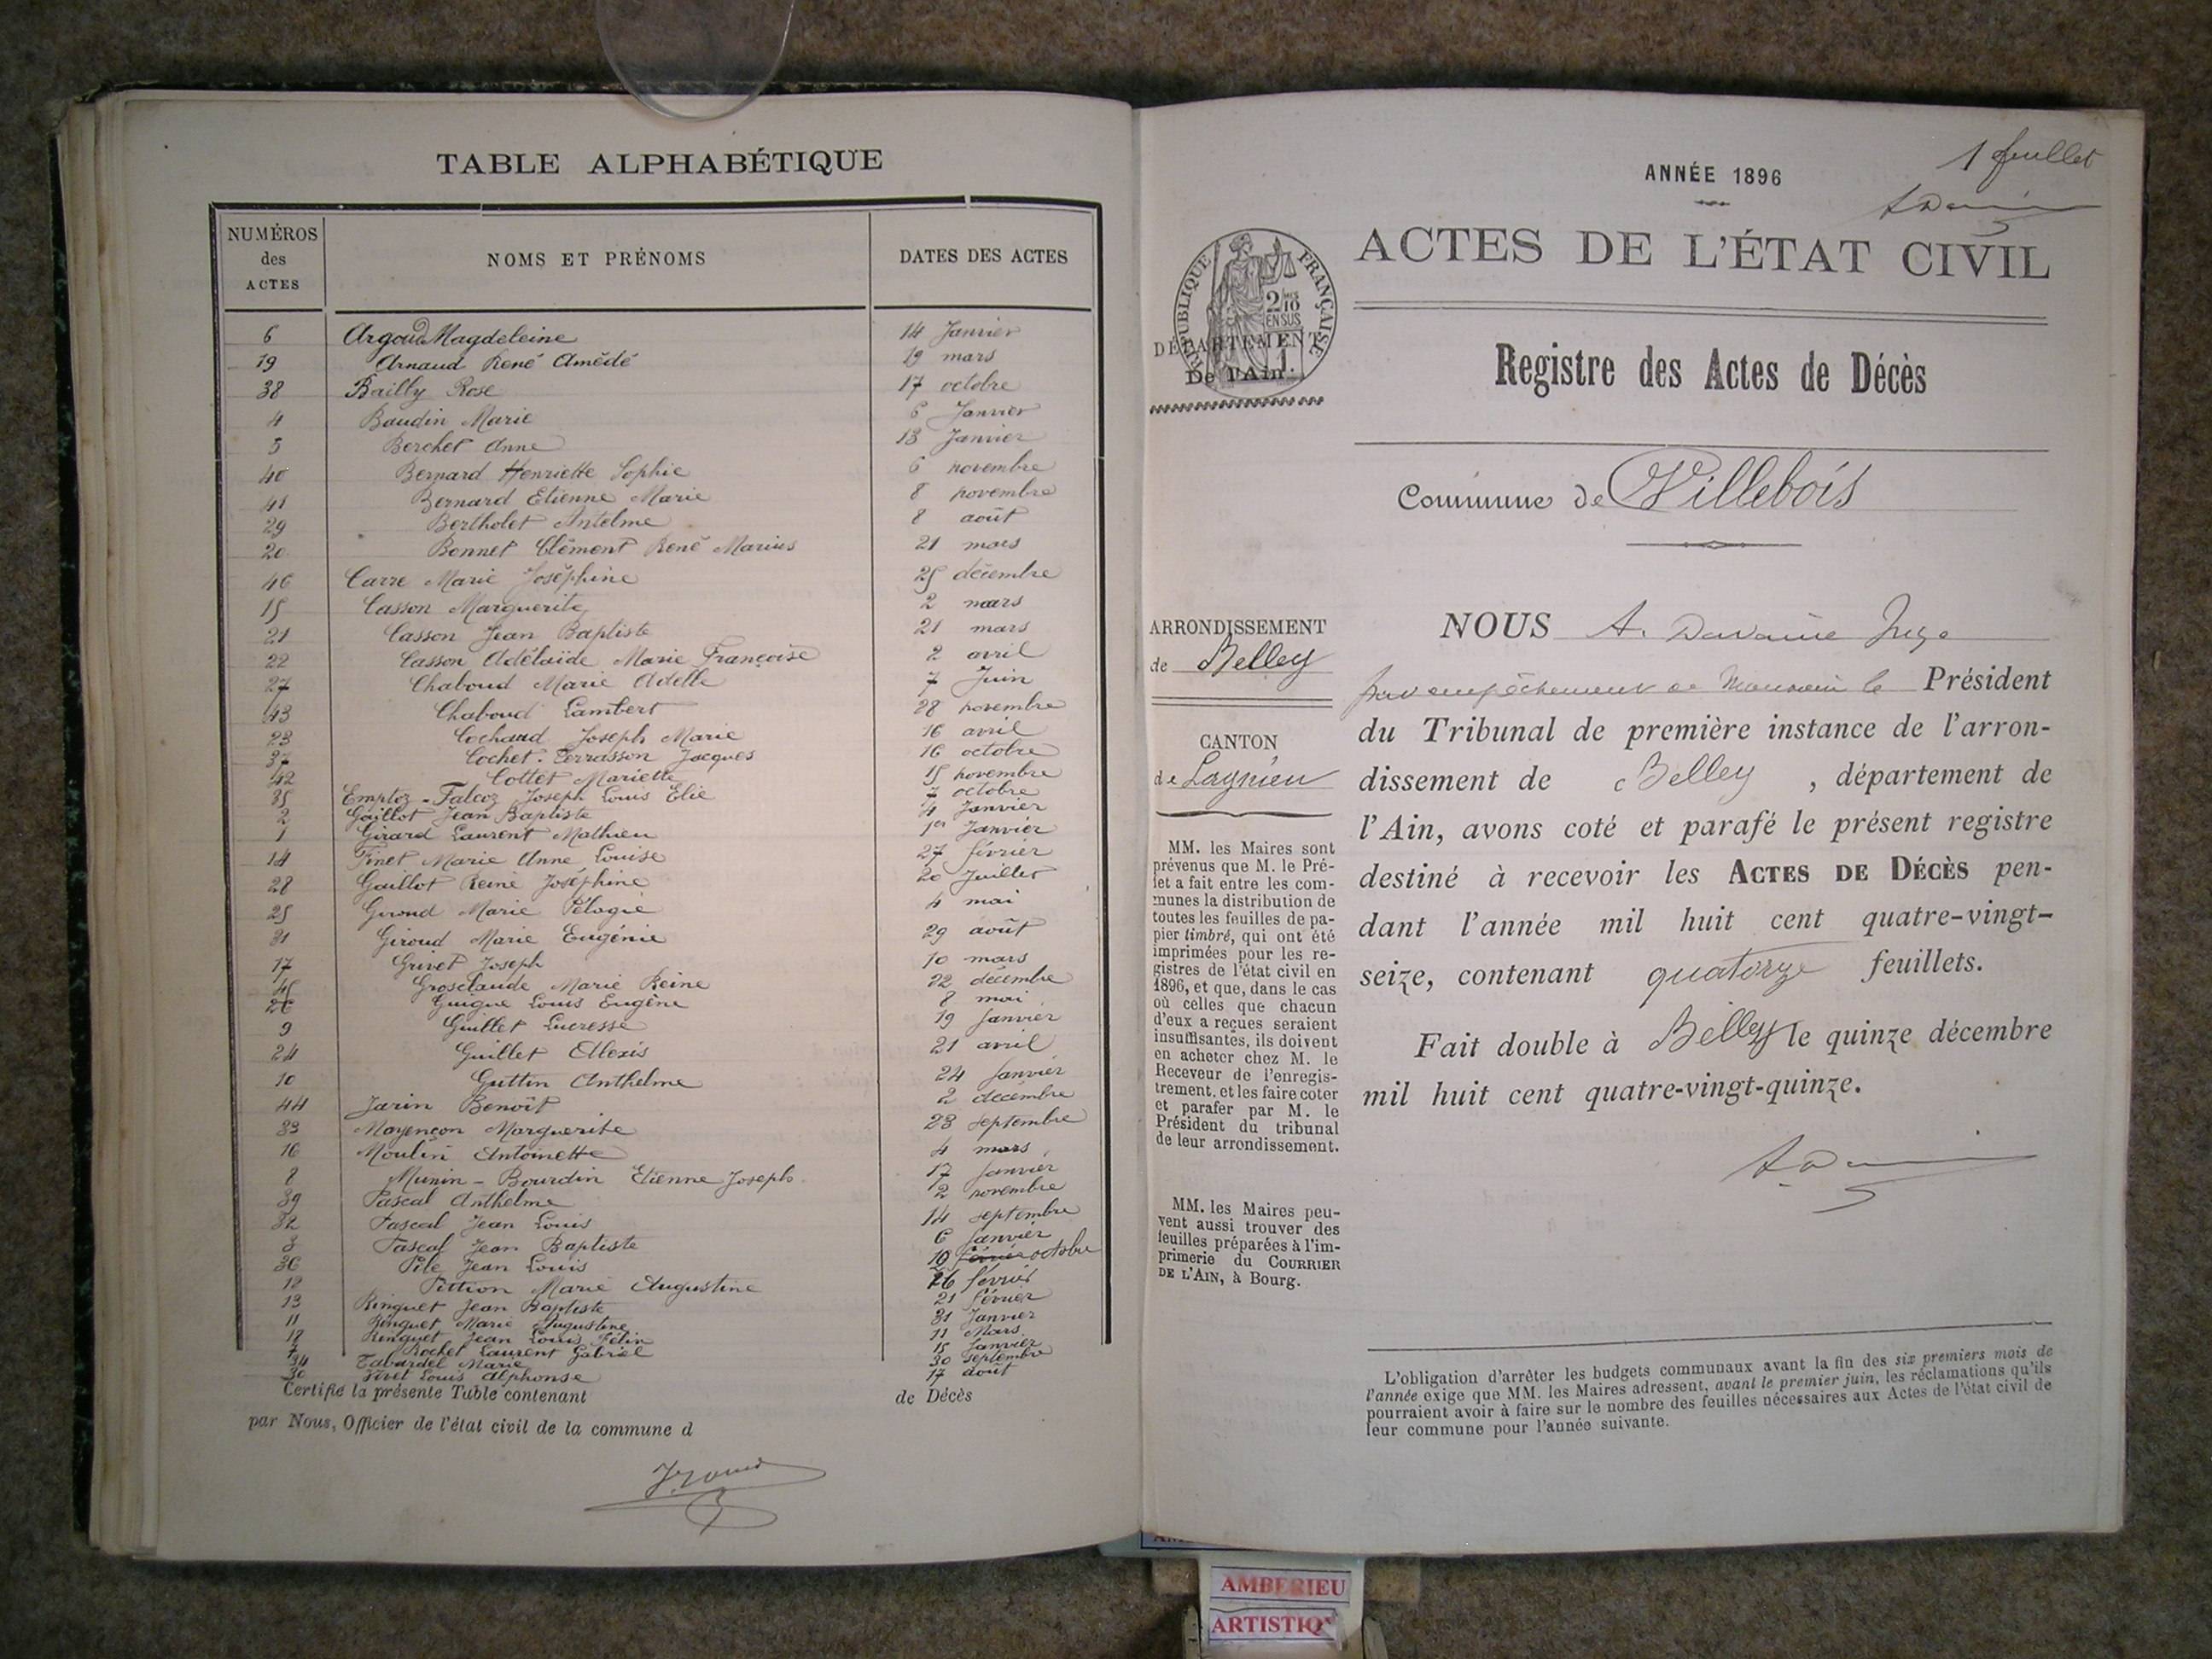 TABLE ALPHABÉTIQUE
NUMÉROS des ACTES NOMS ET PRÉNOMS DATES DES ACTES
6 Argoud Magdeleine 14 Janvier
19 Arnaud René Amédé 19 mars
38 Bailly Rose 17 octobre
4 Baudin Marie 6 Janvier
5 Berchet Anne 13 Janvier
40 Bernard Henriette Sophie 6 novembre
41 Bernard Etienne Marie 8 novembre
29 Bertholet Antelme 8 août
20 Bonnet Clément René Marius 21 mars
46 Carre Marie Joséphine 25 décembre
15 Casson Marguerite 2 mars
21 Casson Jean Baptiste 21 mars
22 Casson Adélaïde Marie Françoise 2 avril
27 Chaboud Marie Adelle 7 Juin
43 Chaboud Lambert 28 novembre
23 Cochaud Joseph Marie 16 avril
37 Cochet-Terrasson Jacques 16 octobre
42 Cottet Mariette 15 novembre
35 Emptoz-Falcoz Joseph Louis Elie 7 octobre
2 Gaillot Jean Baptiste 4 Janvier
1 Girard Laurent Mathieu 1er Janvier
14 Finet Marie Anne Louise 27 février
28 Gaillot Reine Joséphine 20 Juillet
25 Giroud Marie Pélagie 4 mai
31 Giroud Marie Eugénie 29 août
17 Grivet Joseph 10 mars
45 Grosclaude Marie Reine 22 décembre
26 Guigue Louis Eugène 8 mai
9 Guillet Lucresse 19 Janvier
24 Guillet Allexis 21 avril
10 Guttin Anthelme 24 Janvier
44 Jarin Benoît 2 décembre
33 Mayençon Marguerite 23 septembre
16 Moulin Antoinette 4 mars
8 Munin-Bourdin Etienne Joseph 17 Janvier
39 Pascal Anthelme 2 novembre
32 Pascal Jean Louis 14 septembre
3 Pascal Jean Baptiste 6 Janvier
36 Pile Jean Louis 10 octobre
12 Pittion Marie Augustine 16 février
13 Ringuet Jean Baptiste 21 février
11 Ringuet Marie Augustine 31 Janvier
18 Ringuet Jean Louis Félix 11 Mars
7 Rochet Laurent Gabriel 15 Janvier
34 Tabardel Marie 30 septembre
30 Viret Louis Alphonse 17 août
Certifié la présente Table contenant de Décès
par Nous, Officier de l'état civil de la commune d
1 feuillet
ANNÉE 1896
ACTES DE L'ÉTAT CIVIL
RÉPUBLIQUE FRANÇAISE
2/10 EN SUS
DÉPARTEMENT
De l'Ain.
Registre des Actes de Décès
Commune de Villebois
ARRONDISSEMENT
de Belley
CANTON
de Lagnieu
MM. les Maires sont
prévenus que M. le Pré-
fet a fait entre les com-
munes la distribution de
toutes les feuilles de pa-
pier timbré, qui ont été
imprimées pour les re-
gistres de l'état civil en
1896, et que, dans le cas
où celles que chacun
d'eux a reçues seraient
insuffisantes, ils doivent
en acheter chez M. le
Receveur de l'enregis-
trement, et les faire coter
et parafer par M. le
Président du tribunal
de leur arrondissement.
MM. les Maires peu-
vent aussi trouver des
feuilles préparées à l'im-
primerie du COURRIER
DE L'AIN, à Bourg.
NOUS A. Davaine Juge
par empêchement de Monsieur le Président
du Tribunal de première instance de l'arron-
dissement de Belley, département de
l'Ain, avons coté et parafé le présent registre
destiné à recevoir les ACTES DE DÉCÈS pen-
dant l'année mil huit cent quatre-vingt-
seize, contenant quatorze feuillets.
Fait double à Belley le quinze décembre
mil huit cent quatre-vingt-quinze.
L'obligation d'arrêter les budgets communaux avant la fin des six premiers mois de
l'année exige que MM. les Maires adressent, avant le premier juin, les réclamations qu'ils
pourraient avoir à faire sur le nombre des feuilles nécessaires aux Actes de l'état civil de
leur commune pour l'année suivante.
AMBERIEU
ARTISTIQ